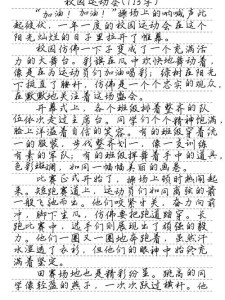 校园运动会(715字)
“加油！加油！”操场上的呐喊声此
起彼伏，一年一度的校园运动会在这个
阳光灿烂的日子里拉开了帷幕。
校园仿佛一下子变成了一个充满活
力的大舞台。彩旗在风中欢快地舞动着，
像是在为运动员们加油喝彩；绿树在阳光
下挺直了腰杆，仿佛是一个个忠实的观众，
在默默地关注着这场盛会。
开幕式上，各个班级排着整齐的队
伍依次走过主席台。同学们个个精神饱满，
脸上洋溢着自信的笑容。有的班级穿着统
一的服装，步伐整齐划一，像一支训练
有素的军队；有的班级挥舞着手中的道具，
色彩斑斓，如同一幅幅美丽的画卷。
比赛正式开始了，操场上顿时热闹起
来。短跑赛道上，运动员们如同离弦的箭
一般飞驰而出。他们咬紧牙关，奋力向前
冲，脚下生风，仿佛要把跑道踏穿。长
跑比赛中，选手们则展现出了顽强的毅
力。他们一圈又一圈地奔跑着，虽然汗
水湿透了衣衫，但他们的眼神中始终充
满着坚定。
田赛场地也是精彩纷呈。跳高的同
学像轻盈的燕子，一次次跃过横杆。他